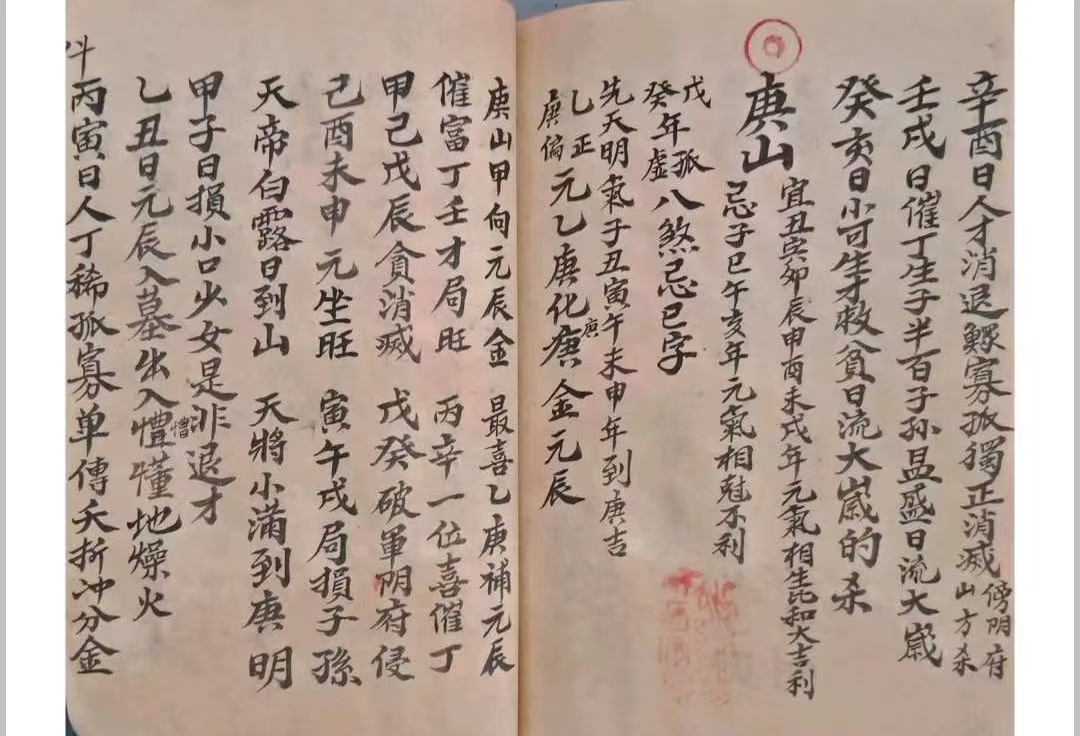 辛酉日人才消退鰥寡孤獨正消滅傍阴府山方杀
壬戌日催丁生子半百子孙昷盛日流大歲
癸亥日小可生才救貧日流大歲的杀
庚山
宜丑寅卯辰申酉未戌年元氣相生比和大吉利
忌子巳午亥年元氣相尅不利
戊癸年孤虚八煞忌巳字
先天明氣子丑寅午未申年到庚吉
乙正庚偏元乙庚化庚金元辰
庚山甲向元辰金 最喜乙庚補元辰
催富丁壬才局旺 丙辛一位喜催丁
甲己戊辰貪消滅 戊癸破軍阴府侵
己酉未申元坐旺 寅午戌局損子孫
天帝白露日到山 天將小滿到庚明
甲子日損小口少女是非退才
乙丑日元辰入墓出入懵懂地燥火
丙寅日人丁稀孤寡单傳夭折冲分金